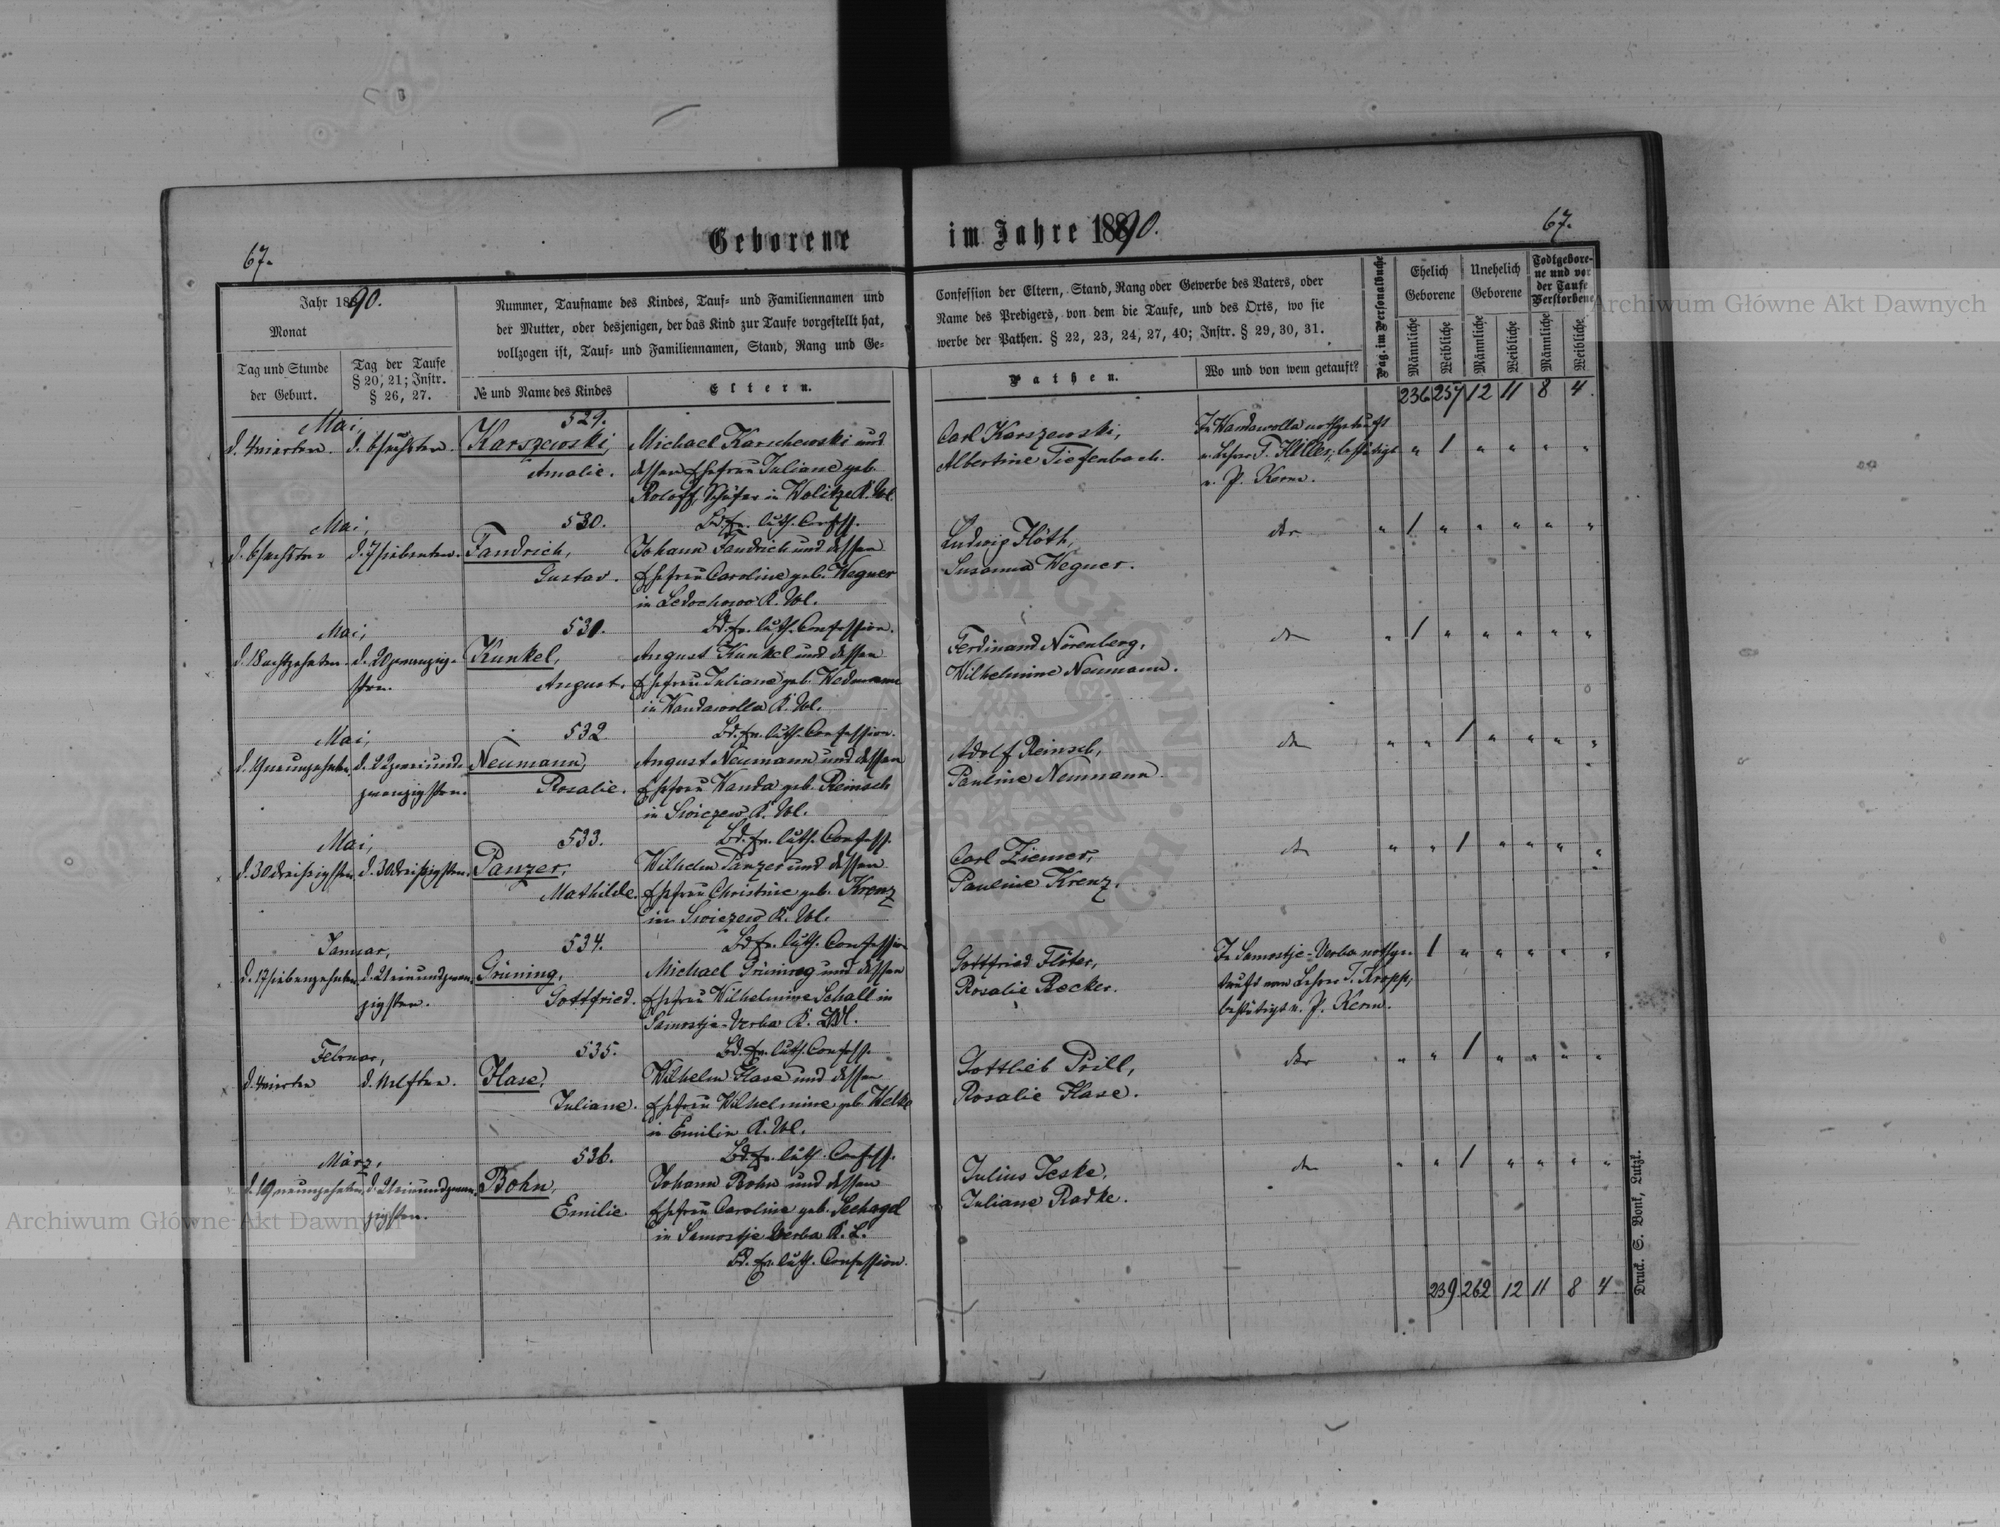 67.
Geborene
im Jahre 1890.
67.
Jahr 1890.
Monat
Tag und Stunde
der Geburt.
Tag der Taufe
§ 20, 21; Instr.
§ 26, 27.
Nummer, Taufname des Kindes, Tauf- und Familiennamen und
der Mutter, oder desjenigen, der das Kind zur Taufe vorgestellt hat,
vollzogen ist, Tauf- und Familiennamen, Stand, Rang und Ge-
№ und Name des Kindes
Eltern.
Confession der Eltern, Stand, Rang oder Gewerbe des Vaters, oder
Name des Predigers, von dem die Taufe, und des Orts, wo sie
werbe der Pathen. § 22, 23, 24, 27, 40; Instr. § 29, 30, 31.
Pathen.
Wo und von wem getauft?
Pag. im Personalbuche
Ehelich
Geborene
Unehelich
Geborene
Todtgebore-
ne und vor
der Taufe
Verstorbene
Männliche
Weibliche
Männliche
Weibliche
Männliche
Weibliche
236 257 12 11 8 4.
Mai,
529.
d. 4 vierten. d. 6 sechsten.
Karszewski,
Amalie.
Michael Karschewski und
dessen Ehefrau Juliane geb.
Roloff, Schäfer in Wolitze K. Wl.
Bd. ev. luth. Confess.
Carl Karszewski,
Albertine Tiefenbach.
In Wandawolla nothgetauft
v. Lehrer T. Hiller, bestätigt
v. P. Kerm.
" 1 " " " "
Mai,
530.
d. 6 sechsten d. 7 siebenten.
Fandrich,
Gustav.
Johann Fandrich und dessen
Ehefrau Caroline geb. Wegner
in Ledochowo K. Wl.
Bd. ev. luth. Confession.
Ludwig Flöth,
Susanna Wegner.
dto
" 1 " " " " "
Mai,
531.
d. 18 achtzehnten. d. 20 zwanzig-
sten.
Kunkel,
August.
August Kunkel und dessen
Ehefrau Juliane geb.
in Wandawolla K. Wl.
Bd. ev. luth. Confession.
Ferdinand Nörenberg,
Wilhelmine Neumann.
dto
" 1 " " " " "
Mai,
532.
d. 19 neunzehnten d. 22 zwei und-
zwanzigsten.
Neumann,
Rosalie.
August Neumann und dessen
Ehefrau Wanda geb. Reinsch
in Swiczew K. Wl.
Bd. ev. luth. Confess.
Adolf Reinsch,
Pauline Neumann.
dto
" " 1 " " " "
Mai,
533.
d. 30 dreißigsten d. 30 dreißigsten.
Panzer,
Mathilde.
Wilhelm Panzer und dessen
Ehefrau Christine geb. Krenz
in Swiczew K. Wl.
Bd. ev. luth. Confession
Carl Ziemer,
Pauline Krenz.
dto
" " 1 " " " "
Januar,
534.
d. 17 siebenzehnten d. 21 ein und zwan-
zigsten.
Grüning,
Gottfried.
Michael Grüning und dessen
Ehefrau Wilhelmine Schall in
Samostje-Verba K.
Bd. ev. luth. Confess.
Gottfried Flöter,
Rosalie Recker.
In Samostje-Verba nothge-
tauft vom Lehrer T. Kropp,
bestätigt v. P. Kerm.
1 " " " " "
Februar,
535.
d. 4 vierten d. 11 elften.
Hase,
Juliane.
Wilhelm Hase und dessen
Ehefrau Wilhelmine geb. Welke
in Emilin K. Wl.
Bd. ev. luth. Confess.
Gottlieb Prill,
Rosalie Hase.
dto
" " 1 " " " "
März,
536.
d. 19 neunzehnten d. 21 ein und zwan-
zigsten.
Bohn,
Emilie.
Johann Bohn und dessen
Ehefrau Caroline geb. Seehagel
in Samostje Verba K. L.
Bd. ev. luth. Confession.
Julius Jeske,
Juliane Radke.
dto
" " 1 " " " "
239. 262 12 11 8 4.
Druck. S. Bonk, Lutzk.
Archiwum Główne Akt Dawnych
Archiwum Główne Akt Dawnych
ARCHIWUM GŁÓWNE AKT DAWNYCH